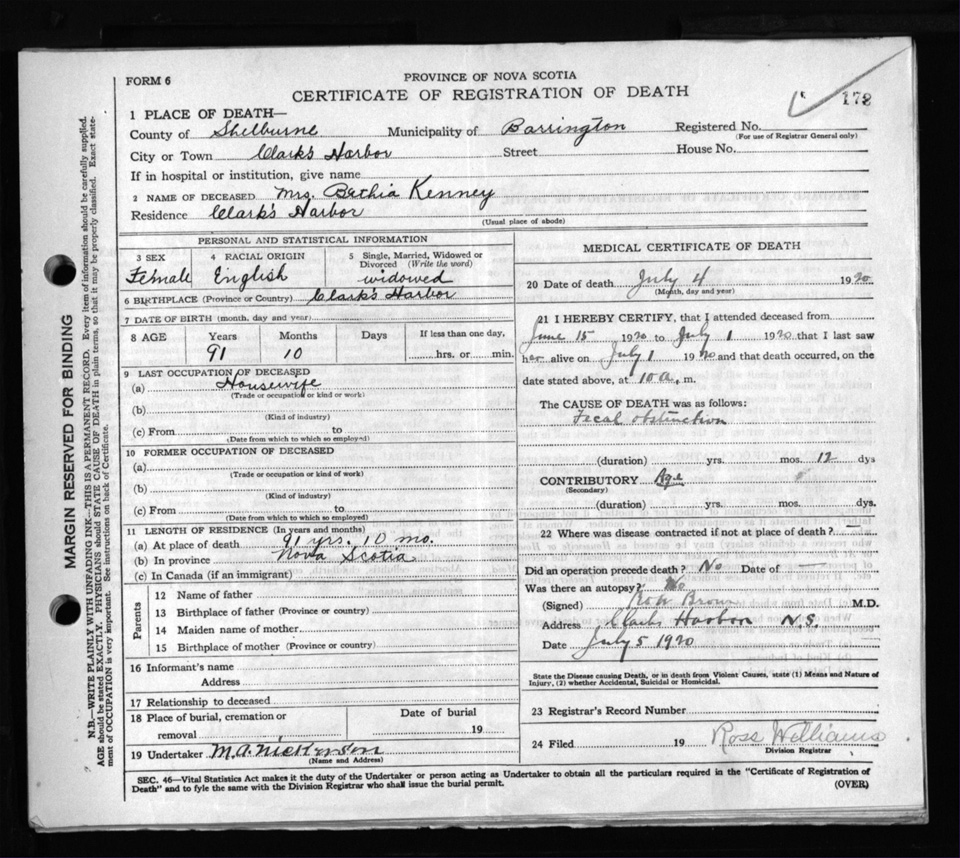 FORM 6
PROVINCE OF NOVA SCOTIA
CERTIFICATE OF REGISTRATION OF DEATH
172
1 PLACE OF DEATH—
County of Shelburne Municipality of Barrington Registered No.
(For use of Registrar General only)
City or Town Clark's Harbor Street House No.
If in hospital or institution, give name
2 NAME OF DECEASED Mrs. Bethia Kenney
Residence Clark's Harbor
(Usual place of abode)
PERSONAL AND STATISTICAL INFORMATION
3 SEX Female
4 RACIAL ORIGIN English
5 Single, Married, Widowed or Divorced (Write the word) widowed
6 BIRTHPLACE (Province or Country) Clark's Harbor
7 DATE OF BIRTH (month, day and year)
8 AGE Years Months Days If less than one day,
91 10 hrs. or min.
9 LAST OCCUPATION OF DECEASED
(a) Housewife
(Trade or occupation or kind or work)
(b)
(Kind of industry)
(c) From to
(Date from which to which so employed)
10 FORMER OCCUPATION OF DECEASED
(a)
(Trade or occupation or kind of work)
(b)
(Kind of industry)
(c) From to
(Date from which to which so employed)
11 LENGTH OF RESIDENCE (In years and months)
(a) At place of death 91 yrs. 10 mo.
(b) In province Nova Scotia
(c) In Canada (if an immigrant)
Parents
12 Name of father
13 Birthplace of father (Province or country)
14 Maiden name of mother
15 Birthplace of mother (Province or country)
16 Informant's name
Address
17 Relationship to deceased
18 Place of burial, cremation or removal
Date of burial
19
19 Undertaker M.A. Nickerson
(Name and Address)
MEDICAL CERTIFICATE OF DEATH
20 Date of death July 4 1920
(Month, day and year)
21 I HEREBY CERTIFY, that I attended deceased from
June 15 1920 to July 1 1920 that I last saw
her alive on July 1 1920 and that death occurred, on the
date stated above, at 10 a. m.
The CAUSE OF DEATH was as follows:
Fecal obstruction
(duration) yrs. mos. 12 dys
CONTRIBUTORY Age
(Secondary)
(duration) yrs. mos. dys.
22 Where was disease contracted if not at place of death?
Did an operation precede death? No Date of —
Was there an autopsy? No
(Signed) Brown M.D.
Address Clarks Harbor N.S.
Date July 5 1920
State the Disease causing Death, or in death from Violent Causes, state (1) Means and Nature of
Injury, (2) whether Accidental, Suicidal or Homicidal.
23 Registrar's Record Number
24 Filed 19 Ross Williams
Division Registrar
SEC. 46—Vital Statistics Act makes it the duty of the Undertaker or person acting as Undertaker to obtain all the particulars required in the "Certificate of Registration of
Death" and to fyle the same with the Division Registrar who shall issue the burial permit.
(OVER)
MARGIN RESERVED FOR BINDING
N.B.—WRITE PLAINLY WITH UNFADING INK—THIS IS A PERMANENT RECORD. Every item of information should be carefully supplied.
AGE should be stated EXACTLY. PHYSICIANS should STATE CAUSE OF DEATH in plain terms, so that it may be properly classified. Exact state-
ment of OCCUPATION is very important. See instructions on back of Certificate.